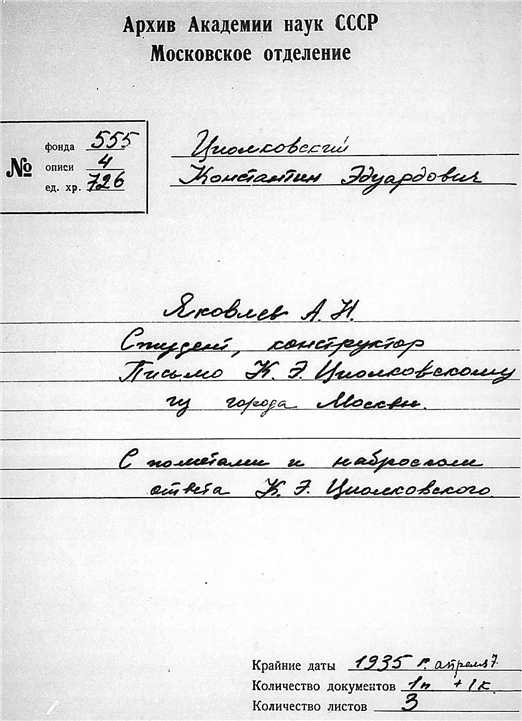 Архив Академии наук СССР
Московское отделение
№
фонда 555
описи 4
ед. хр. 726
Циолковский
Константин Эдуардович
Яковлев А. Н.
Студент, конструктор
Письмо К. Э. Циолковскому
из города Москвы.
С пометами и наброском
ответа К. Э. Циолковского.
Крайние даты 1935 г. апреля 7.
Количество документов 1п + 1к.
Количество листов 3